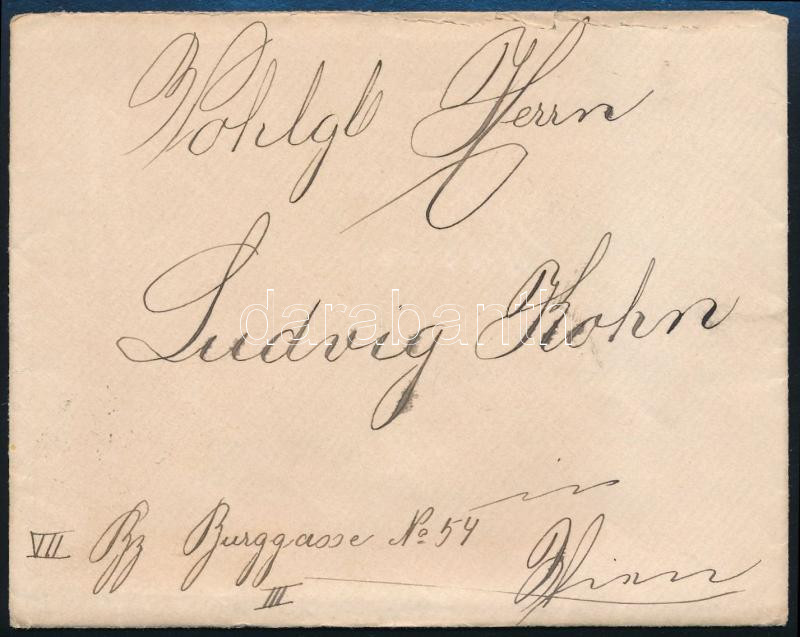 Wohlgb Herrn
Ludvig Kohn
in
VII Bz Burggasse No 54
III
Wien
darabanth